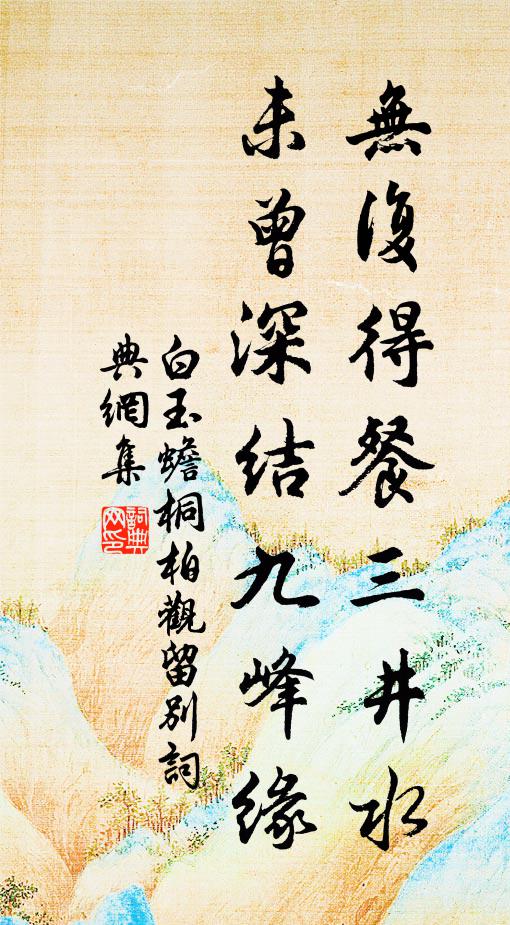 無復得餐三井水
未曾深結九峰緣
白玉蟾桐柏觀留別詞
典網集
詞典
网印